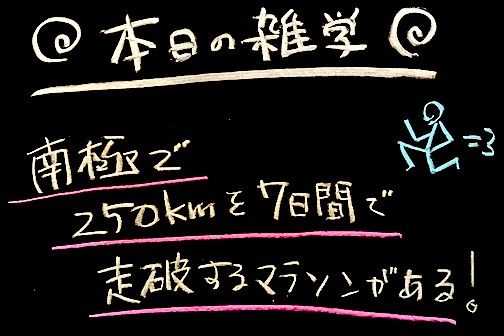 本日の雑学
南極で
250kmを7日間で
走破するマラソンがある!